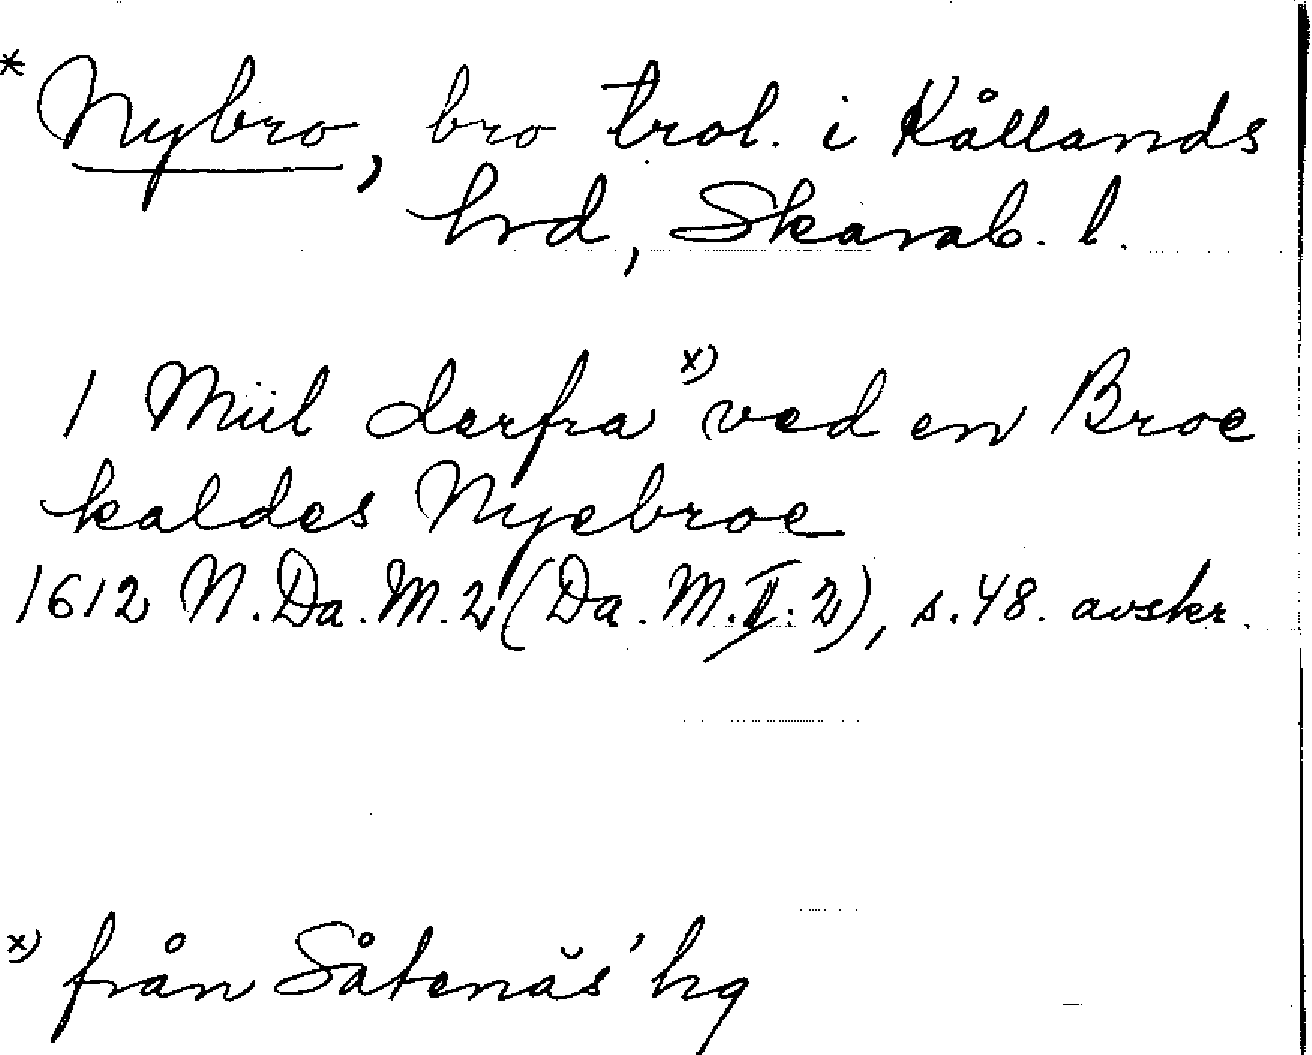 * Nybro, bro trol. i Kållands
hrd, Skarab. l.
1 Miil derfra x) ved en Broe
kaldes Nyebroe
1612 N. Da. M. 2 (Da. M. II: 2), s. 48. avskr.
x) från Såtenäs' hg